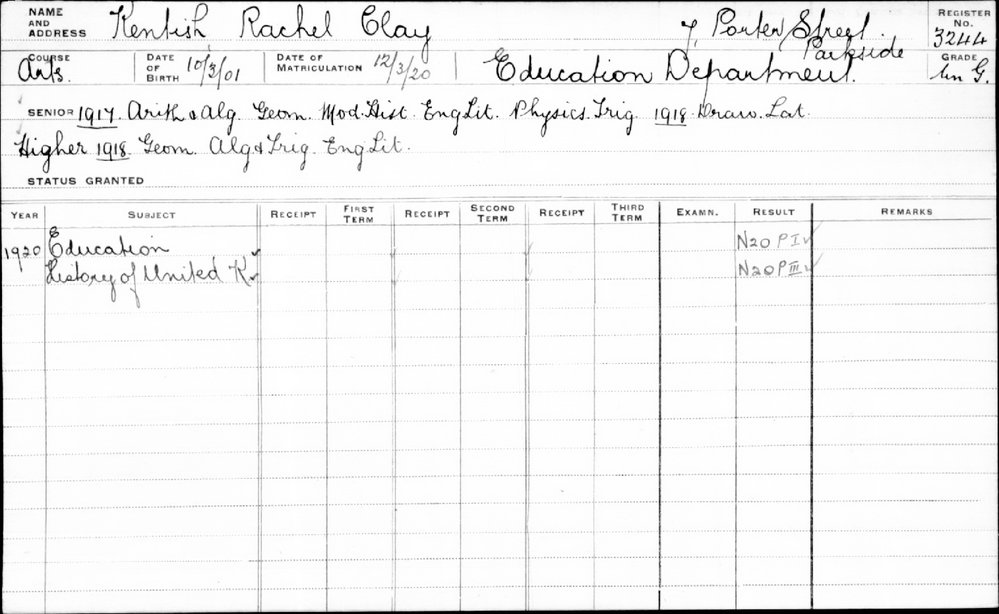 NAME AND ADDRESS Kentish, Rachel Clay 7, Porter Street Parkside REGISTER No. 3244
COURSE Arts. DATE OF BIRTH 10/3/01 DATE OF MATRICULATION 12/3/20 Education Department. GRADE Un G.
SENIOR 1917. Arith & Alg. Geom. Mod. Hist. Eng Lit. Physics. Trig. 1918. Draw. Lat.
Higher 1918. Geom. Alg & Trig. Eng Lit.
STATUS GRANTED
YEAR SUBJECT RECEIPT FIRST TERM RECEIPT SECOND TERM RECEIPT THIRD TERM EXAMN. RESULT REMARKS
1920 Education ✓ N20 P I ✓
History of United K ✓ N20 P III ✓